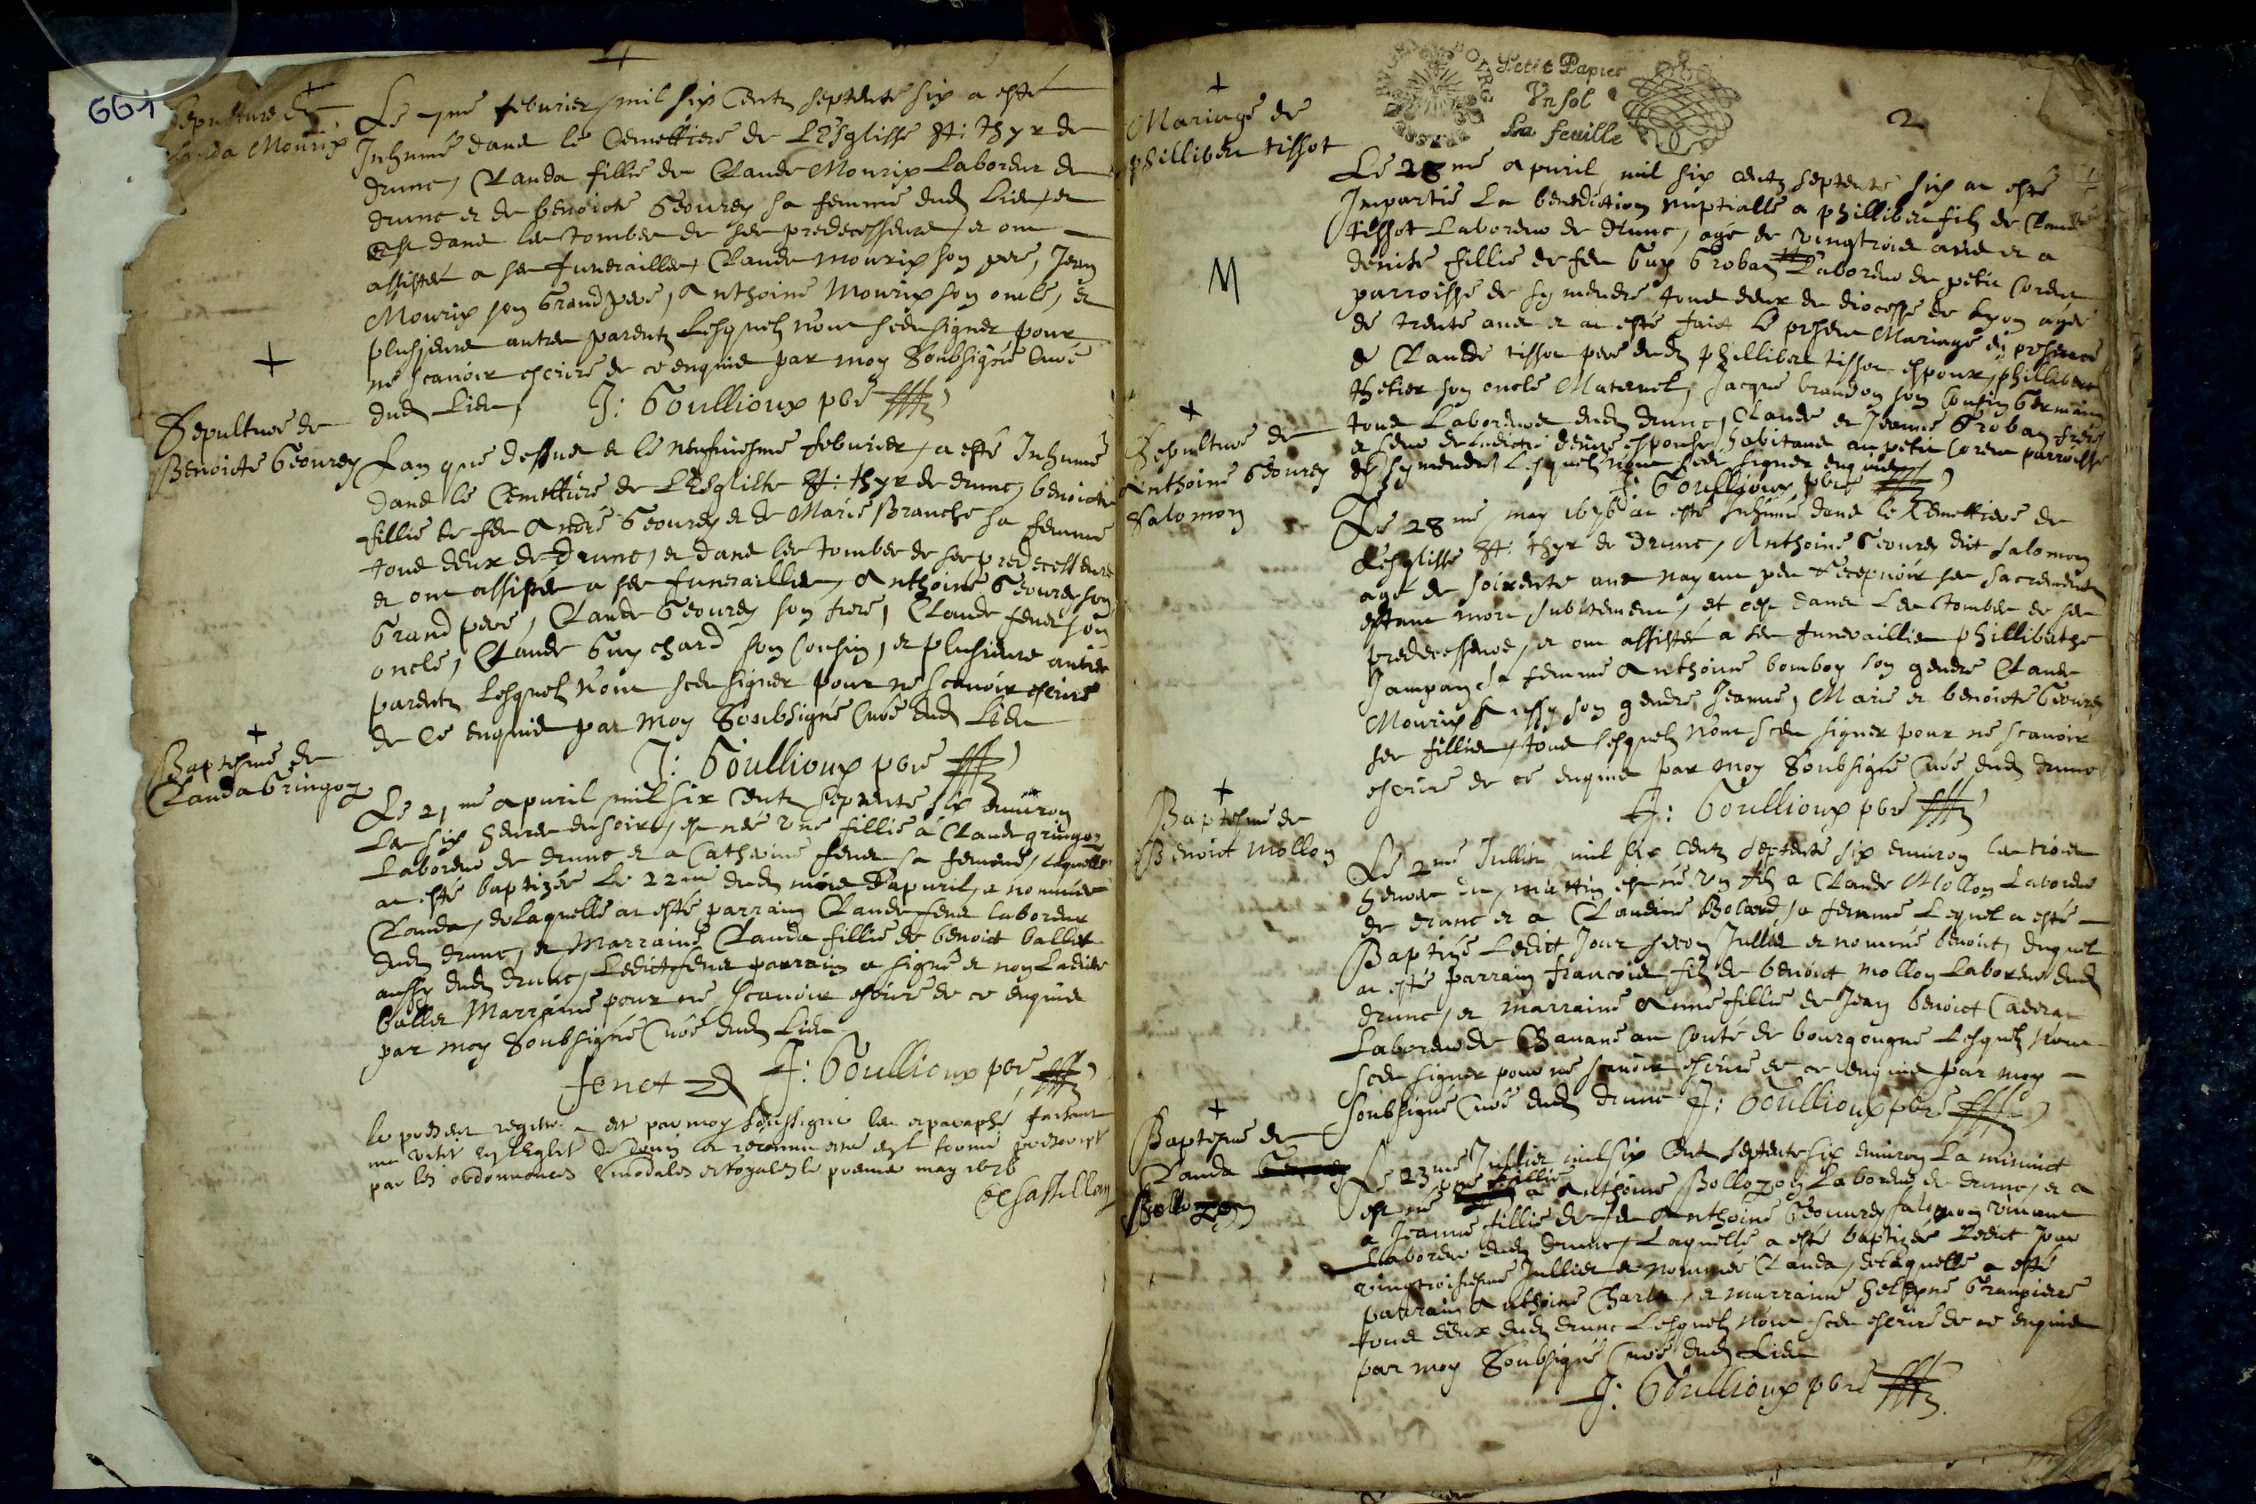 661
Sepulture de
Clauda Mourix
Le 7me febvrier mil six centz septente six a esté
Inhumé dans le Cemettiere de L'Esglisse St: thyr de
drunc, Clauda fillie de Claude Mourix Laboreur de
drunc et de benoicte Geourey sa femme dud Lieu, et
est dans les tombes de ses predecesseurs, et ont
assistés a ses funerailles, Claude Mourix son pere, Jean
Mourix son Grand pere, Anthoine Mourix son oncle, et
plusieurs autres parentz Lesquelz n'ont sceu signer pour
ne scavoir escrire de ce enquis par moy Soubsigné Curé
dud Lieu, J: Goullioux pbre
Sepulture de
Benoicte Geourey
L'an que dessus et le neufviesme febvrier, a esté Inhumé
dans le Cemettiere de L'Esglisse St: thyr de drunc, benoicte
fillie de feu André Geourey et de Marie Branche sa femme
tous deux de drunc, et dans les tombes de ses predecesseurs
et ont assistes a ses funerailles, Anthoine Geourey son
Grand pere, Claude Geourey son frere, Claude fenet son
oncle, Claude Guychard son Cousin, et plusieurs autres
parentz Lesquelz n'ont sceu signer pour ne scavoir escrire
de Ce enquis par moy Soubsigné Curé dud Lieu
J: Goullioux pbre
Baptesme de
Clauda Gringoz
Le 21me apvril mil six Centz septente six environ
Les six heures du soir, est née une fillie a Claude gringoz
Laboreur de drunc et a Catherine fenet sa femme, Laquelle
at esté baptizée Le 22me dud mois d'apvril, et nommée
Clauda, de Laquelle at esté parrain Claude fenet laboreur
dud drunc, et Marraine Clauda fillie de benoict ballet
aussy dud drunc, Ledict fenet parrain a signé et non Ladicte
ballet Marraine pour ne scavoir escrire de ce enquise
par moy Soubsigné Curé dud Lieu
fenet J: Goullioux pbre
le present registre a esté par moy soussigné leu et paraphé faisant
ma visite en l'Eglise de
par les ordonnances sinodales et royales le premier may 1676
Mariage de
Phillibert tissot
Petit Papier
Un sol
La feuille
2
Le 28me apvril mil six centz septente six at esté
Impartie La benediction nuptialle a phillibert filz de Claude
tissot Laboreur de drunc, agé de vingtrois ans et a
denise fillie de feu Guy Groban Laboreur de petit Corent
parroisse de symendre tous deux de diocesse de Lyon agée
de trente ans et at esté faict le present Mariage en presence
de Claude tissot pere dud phillibert tissot espoux, phillibert
thetier son oncle Maternel, Jacque brandon son Cousin Germain
tous Laboreurs dud drunc, Claude et Jeanne Groban frere
et seur de Ladicte denise espouse habitans au petit Corent parroisse
de symendre Lesquelz n'ont sceu signer enquis
J: Goullioux pbre
M
Sepulture de
Anthoine Geourey
Salomon
Le 28me may 1676 at esté Inhumé dans le Cemettiere de
L'esglisse St: thyr de Drunc, Anthoine Geourey dit Salomon
agé de soixente ans nayant peu recepvoir ses sacrements
estant mort subitement, et est dans Les tombes de ses
predecesseurs, et ont assistés a ses funeraillies philliberthe
Jampan sa femme Anthoine bomboy son gendre Claude
Mourix aussy son gendre, Jeanne, Marie et benoicte Geourey
ses fillies, tous Lesquelz n'ont sceu signer pour ne scavoir
escrire de ce enquis par moy Soubsigné Curé dud drunc
J: Goullioux pbre
Baptesme de
Benoict Mollon
Le 2me Jullier mil six Centz septente six environ Les trois
heures du mattin est né un filz a Claude Mollon Laboreur
de drunc et a Claudine Bolard sa femme Lequel a esté
Baptizé Ledict Jour second Jullier et nommé benoict, duquel
at esté parrain francois filz de benoict mollon Laboreur dud
drunc, et marraine Anne fillie de Jean benoict
Laboreur de Chavane au Conté de bourgougne Lesquelz n'ont
sceu signer pour ne scavoir escrire de ce enquis par moy
soubsigné Curé dud drunc J: Goullioux pbre
Baptesme de
Clauda
Bollozon
Le 23me Jullier mil six Cent septente six environ La minuict
est né une fillie a Anthoine Bollozon Laboreur de drunc, et a
a Jeanne fillie de feu Anthoine Geourey salomon vivant
Laboreur dud drunc, Laquelle a esté baptizée Ledict Jour
vingtroisiesme Jullier et nommée Clauda, de Laquelle a esté
parrain Anthoine Charles, et marraine helayne Granpierre
tous deux dud drunc Lesquelz n'ont sceu escrire de ce enquis
par moy Soubsigné Curé dud Lieu
J: Goullioux pbre